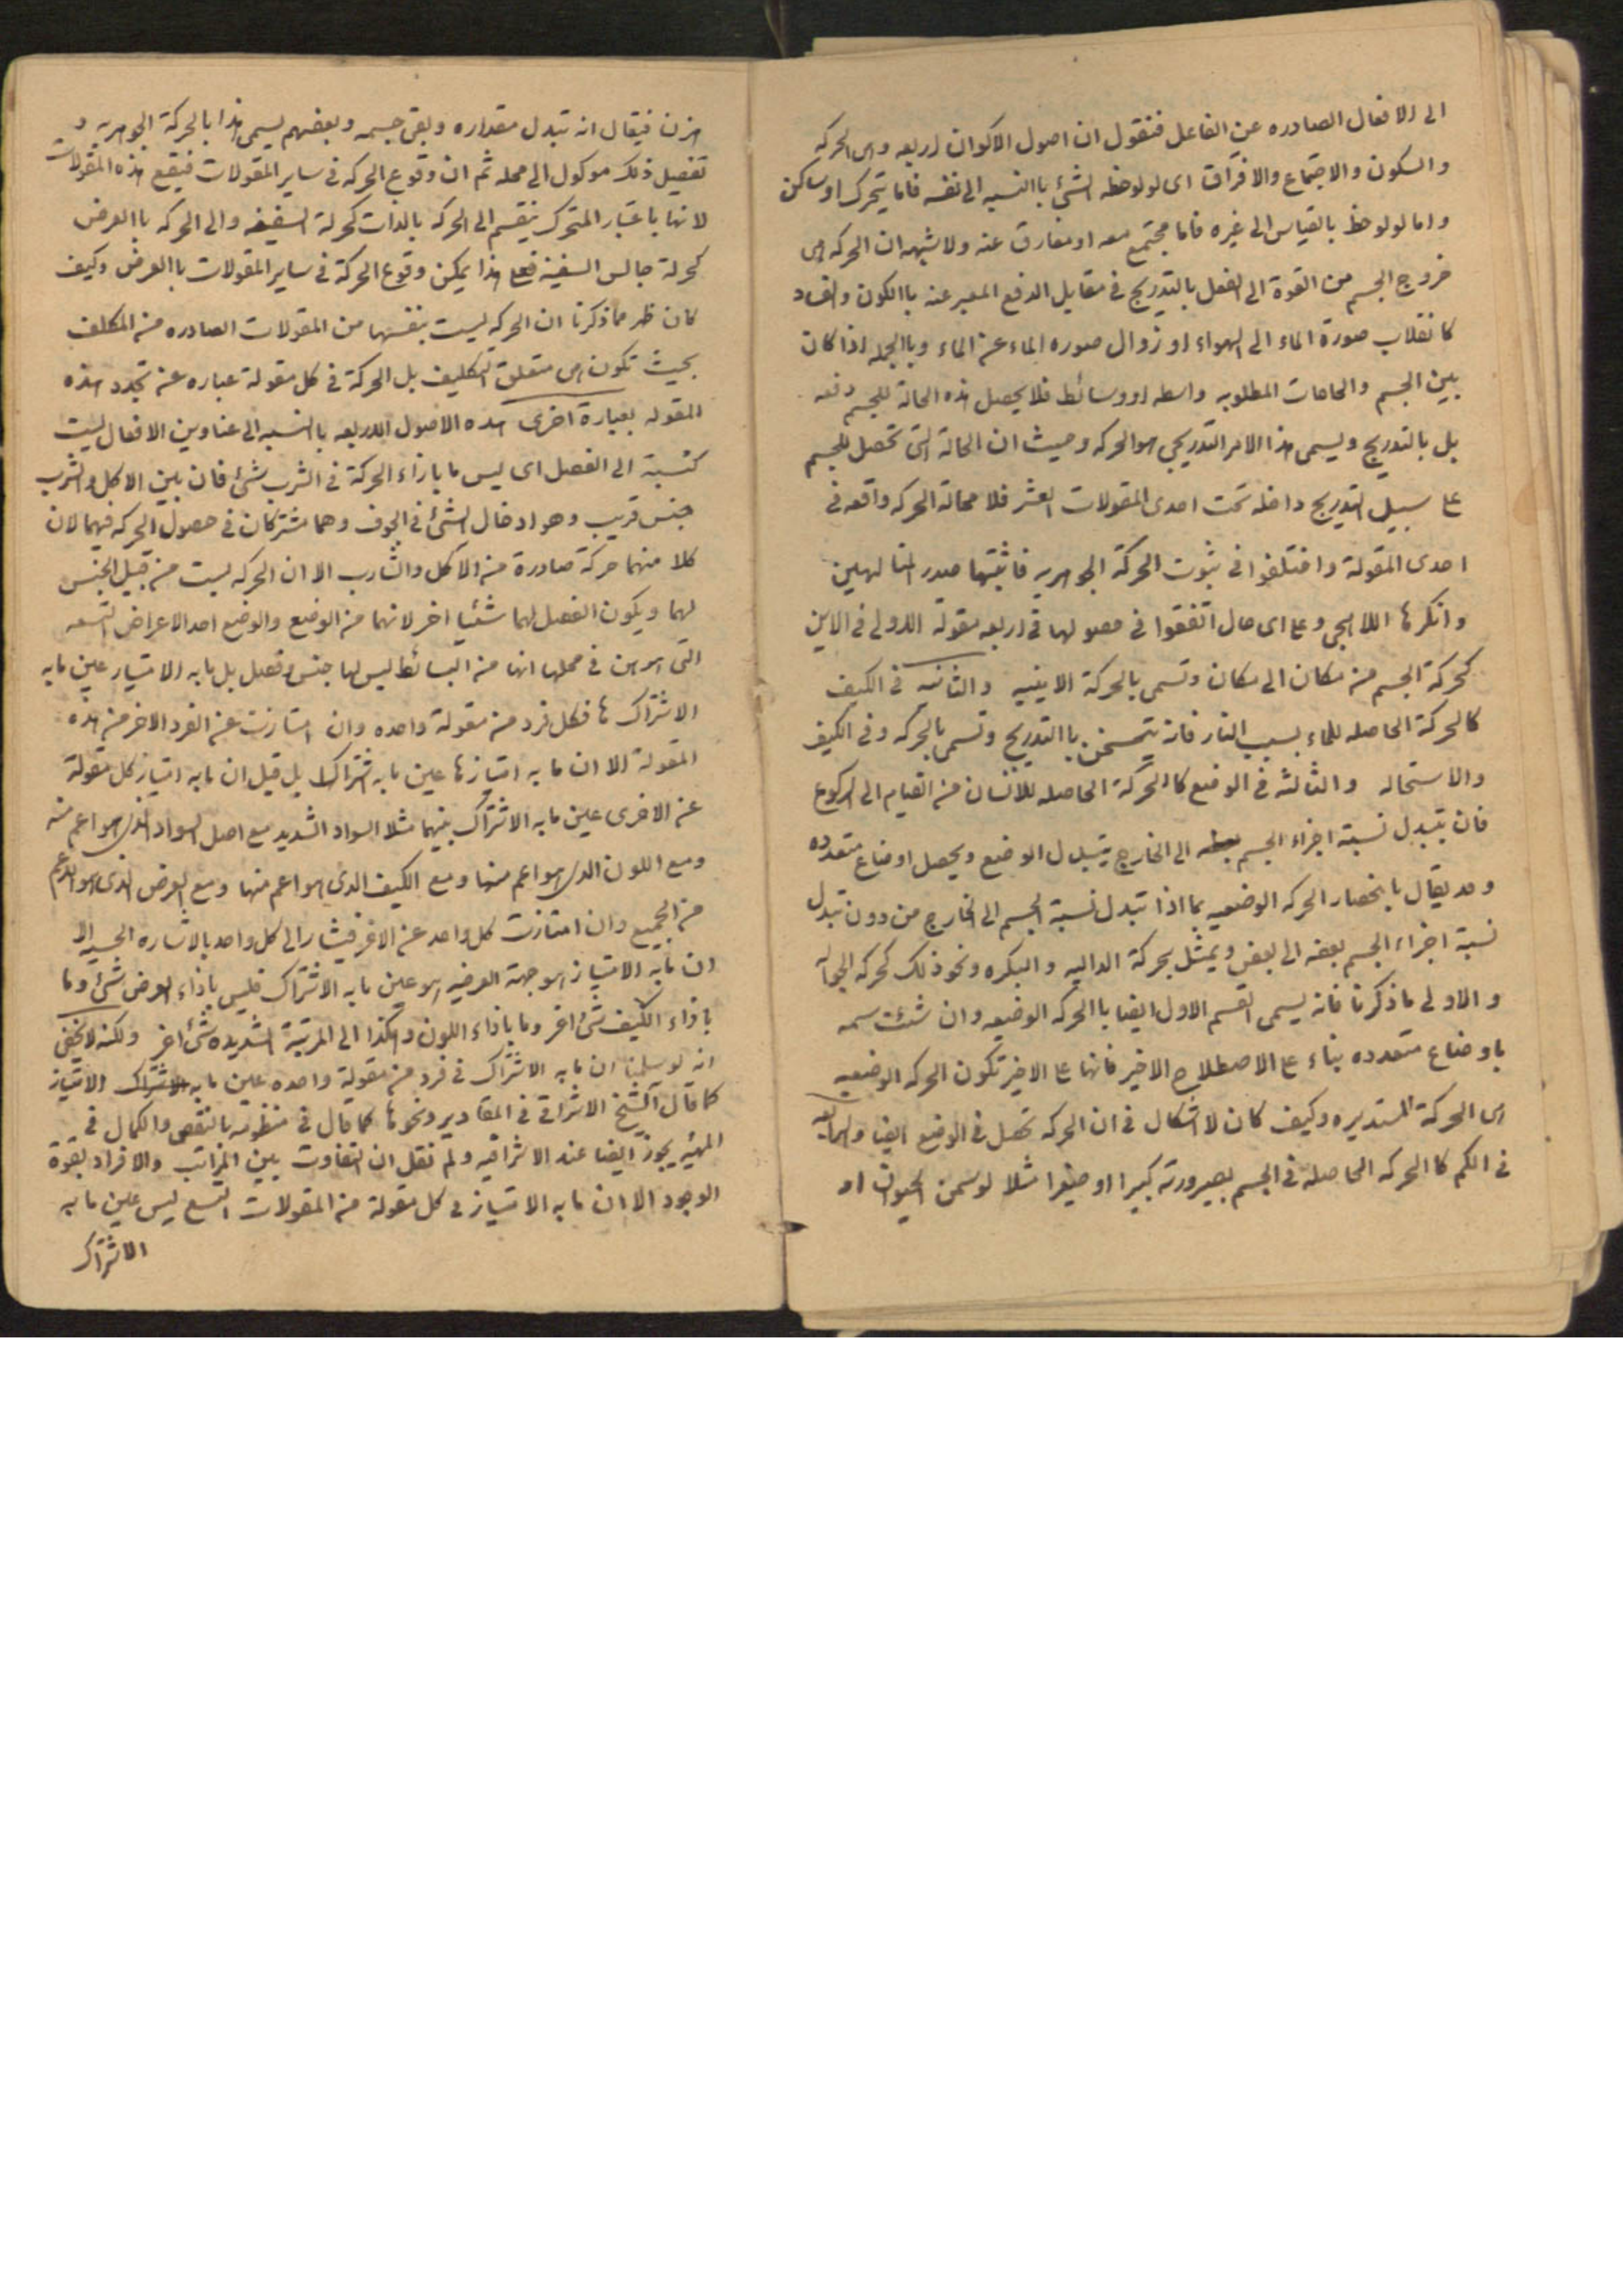 الى الافعال الصادره عن الفاعل فنقول ان اصول الاكوان اربعه وهى الحركه
والسكون والاجتماع والافتراق اى لو لوحظه الشئ باالنسبه الى نفسه فاما يتحرك او ساكن
واما لو لوحظ بالقياس الى غيره فاما مجتمع معه او مفارق عنه ولا شبهه ان الحركه هى
خروج الجسم من القوة الى الفعل بالتدريج فى مقابل الدفع المعبر عنه باالكون والفساد
كانقلاب صورة الماء الى الهواء او زوال صوره الماء عن الماء وباالجمله اذا كان
بين الجسم والحاهات المطلوبه واسطه او وسائط فلا يحصل هذه الحالة للجسم دفعه
بل بالتدريج ويسمى هذا الامر التدريجى هو الحركه وحيث ان الحالة التى تحصل للجسم
على سبيل التدريج داخله تحت احدى المقولات العشر فلا محالة الحركه واقعه فى
احدى المقولة واختلفوا فى ثبوت الحركة الجوهريه فاثبتها صدر المتالهين
وانكرها اللاهجى وعلى اى حال اتفقوا فى حصولها فى اربعه مقولة الاولى فى الاين
كحركة الجسم من مكان الى مكان وتسمى بالحركة الاينيه والثانيه فى الكيف
كالحركة الحاصله للماء بسبب النار فانه يتسخن باالتدريج وتسمى بالحركه وفى الكيف
والاستحاله والثالثه فى الوضع كاالحركة الحاصله للانسان من القيام الى الركوع
فان يتبدل نسبة اجزاء الجسم الى الخارج يتبدل الوضع ويحصل اوضاع متعدده
وقد يقال بانحصار الحركه الوضعيه بما اذا تبدل نسبة الجسم الى الخارج من دون تبدل
نسبة اجزاء الجسم بعضه الى بعض ويمثل بحركة الداليه والبكره ونحو ذلك كحركه الجواله
والاولى ما ذكرنا فانه يسمى القسم الاول ايضا باالحركه الوضعيه وان شئت سمه
باوضاع متعدده بناء على الاصطلاح الاخير فانها على الاخير تكون الحركه الوضعيه
اى الحركة المستديره وكيف كان لا اشكال فى ان الحركه تحصل فى الوضع ايضا والرابعه
فى الكم كاالحركه الحاصلة فى الجسم بصيرورته كبيرا او صغيرا مثلا لو سمن الحيوان او
هزن فيقال انه تبدل مقداره وبقى جسمه وبعضهم يسمى هذا بالحركة الجوهريه و
تفصيل ذلك موكول الى محله ثم ان وقوع الحركه فى ساير المقولات فيقع هذه المقولات
لانها باعتبار المتحرك ينقسم الى الحركه بالذات كحركة السفينه والى الحركه باالعرض
كحركة جالس السفينه فعلى هذا يمكن وقوع الحركة فى ساير المقولات باالعرض وكيف
كان ظهر مما ذكرنا ان الحركه ليست بنفسها من المقولات الصادره من المكلف
بحيث تكون هى متعلق التكليف بل الحركة فى كل مقولة عباره عن تجدد هذه
المقوله بعبارة اخرى هذه الاصول الاربعه باالنسبه الى عناوين الافعال ليست
كنسبة الى الفصل اى ليس ما بازاء الحركة فى الشرب شئ فان بين الاكل والشرب
جنس قريب وهو ادخال الشئ فى الجوف وهما مشتركان فى حصول الحركه فيهما لان
كلا منهما حركة صادرة من الاكل والشارب الا ان الحركه ليست من قبيل الجنس
لهما ويكون الفصل لهما شئيا اخر لانهما من الوضع والوضع احد الاعراض التسعه
التى برهن فى محلها انها من البسائط ليس لها جنس وفصل بل ما به الامتياز عين ما به
الاشتراك ها فكل فرد من مقولة واحده وان امتازت عن الفرد الاخر من هذه
المقولة الا ان ما به امتيازها عين ما به اشتراك بل قيل ان ما به امتياز كل مقولة
عن الاخرى عين ما به الاشتراك بينهما مثلا السواد الشديد مع اصل السواد الذى هو اعم منه
ومع اللون الذى هو اعم منها ومع الكيف الذى هو اعم منها ومع العرض الذى هو الاعم
من الجميع وان امتازت كل واحد عن الاخر فيشار الى كل واحد بالاشاره الحسيه الا
ان ما به الامتياز هو جهة العرضيه هو عين ما به الاشتراك فليس باذاء العرض شئ وما
باذاء الكيف شئ اخر وما باذاء اللون وهكذا الى المرتبة الشديده شئ اخر ولكنه لا يخفى
انه لو سلمنا ان ما به الاشتراك فى فرد من مقولة واحده عين ما به الاشتراك الامتياز
كما قال الشيخ الاشراقى فى المقادير ونحوها كما قال فى منظومته بالنقص والكمال فى
المهيه يجوز ايضا عند الاشراقيه ولم نقل ان التفاوت بين المراتب والافراد بقوة
الوجود الا ان ما به الامتياز فى كل مقولة من المقولات التسع ليس عين ما به
الاشتراك